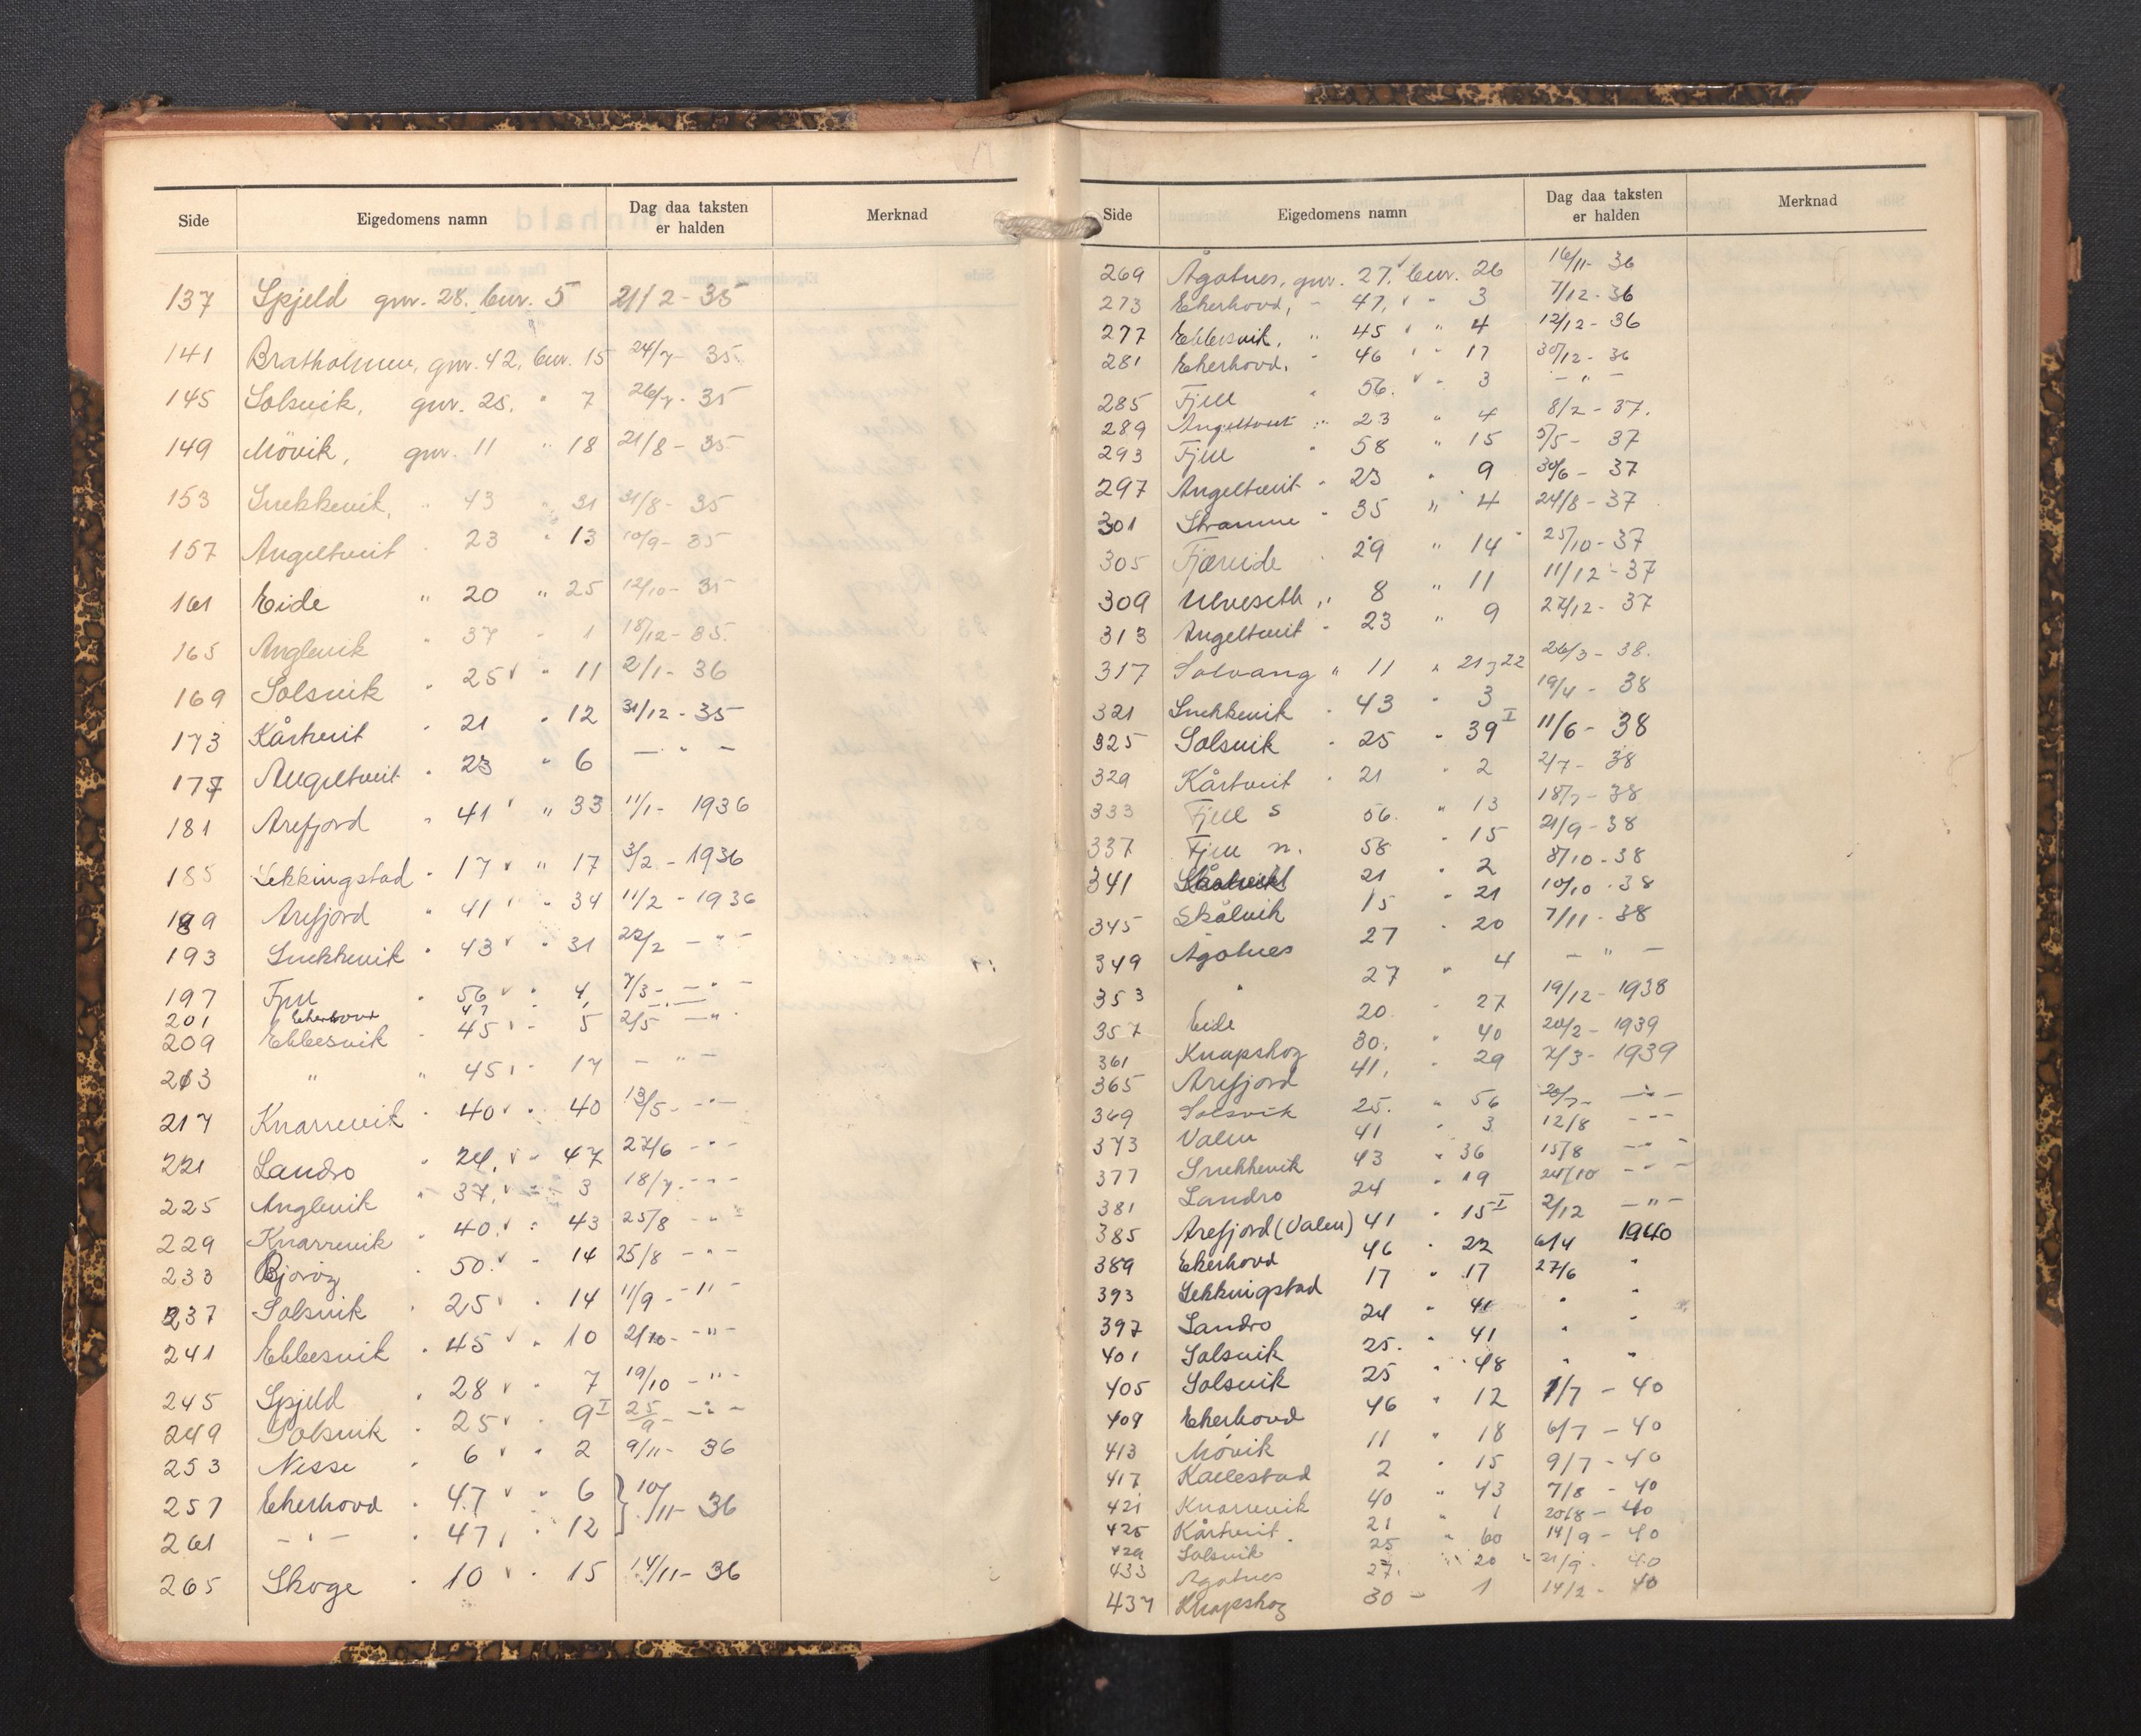 Side Eigedomens namn Dag daa taksten er halden Merknad
137 Spjeld gnr. 28. bnr. 5 21/2 - 35
141 Bratholmen, gnr. 42, bnr. 15 24/7 - 35
145 Solsvik, gnr. 25. " 7 26/7 - 35
149 Mövik, gnr. 11 " 18 21/8 - 35
153 Snekkevik, " 43 " 31 31/8 - 35
157 Angeltveit " 23 " 13 10/9 - 35
161 Eide " 20 " 25 12/10 - 35
165 Anglevik " 37 " 1 18/12 - 35.
169 Solsvik " 25 " 11 2/1 - 36
173 Kårtveit " 21 " 12 31/12 - 35
177 Angeltveit " 23 " 6 — " —
181 Arefjord " 41 " 33 11/1 - 1936
185 Lekkingstad " 17 " 17 3/2 - 1936
189 Arefjord " 41 " 34 11/2 - 1936
193 Snekkevik " 43 " 31 22/2 — " —
197 Fjell " 56 " 4 7/3 — " —
201 Ekerhovd 47
209 Ebbesvik " 45 " 5 2/5 — "
213 " " 45 " 17 — " —
217 Knarrevik " 40 " 40 13/5 — " —
221 Landro " 24. " 47 27/6 — " —
225 Anglevik " 37. " 3 18/7 — " —
229 Knarrevik " 40. " 43 25/8 — " —
233 Bjoröy " 50. " 14 25/8 — " —
237 Solsvik " 25 " 14 11/9 — " —
241 Ebbesvik " 45 " 10 2/10 — " —
245 Spjeld " 28 " 7 19/10 — " —
249 Solsvik " 25 " 9 I 25/9 — " —
253 Nesse " 6 " 2 9/11 - 36
257 Ekerhovd " 47 " 6 } 10/11 - 36
261 — " — " 47, " 12
265 Skoge " 10 " 15 14/11 - 36
Side Eigedomens namn Dag daa taksten er halden Merknad
269 Ågotnes, gnr. 27, bnr. 26 16/11 - 36
273 Ekerhovd, " 47, " 3 7/12 - 36
277 Ebbesvik, " 45 " 4 12/12 - 36
281 Ekerhovd, " 46 " 17 30/12 - 36
285 Fjell " 56. " 3 — " —
289 Angeltveit " 23 " 4 8/2 - 37.
293 Fjell " 58 " 15 5/5 - 37
297 Angeltveit " 23 " 9 30/6 - 37
301 Straume " 35 " 4 24/8 - 37
305 Fjæreide " 29 " 14 25/10 - 37
309 Ulveseth " 8 " 11 11/12 - 37
313 Angeltveit " 23 " 9 27/12 - 37
317 Solvang " 11 " 21 & 22 26/3 - 38.
321 Snekkevik " 43 " 3 19/4 - 38
325 Solsvik " 25 " 39 I 11/6 - 38
329 Kårtveit " 21 " 2 2/7 - 38
333 Fjell s 56. " 13 18/7 - 38
337 Fjell n. 58 " 15 21/9 - 38
341 Kårtveit 21 " 2 8/10 - 38
345 Skålvik 15 " 21 10/10 - 38
349 Ågotnes 27 " 20 7/11 - 38
353 " 27 " 4 — " —
357 Eide 20. " 27 19/12 - 1938
361 Knapskog 30. " 40 20/2 - 1939
365 Arefjord 41, " 29 7/3 - 1939
369 Solsvik 25. " 56 20/7 — " —
373 Valen 41 " 3 12/8 — " —
377 Snekkevik 43 " 36 15/8 — " —
381 Landro 24 " 19 24/10 — " —
385 Arefjord (Valen) 41 " 15 I 2/12 — " —
389 Ekerhovd 46 " 22 6/4 1940
393 Lekkingstad 17 " 17 27/6 "
397 Landro 24 " 41 " "
401 Solsvik 25. " 41 " "
405 Solsvik 25 " 48 " "
409 Ekerhovd 46 " 12 1/7 - 40
413 Mövik 11 " 18 6/7 - 40
417 Kallestad 2 " 15 9/7 - 40
421 Knarrevik 40 " 43 7/8 - 40
425 Kårtveit. 21 " 1 20/8 - 40
429 Solsvik 25 " 60 14/9 - 40
433 Ågotnes 27. " 20 21/9 - 40
437 Knapskog 30 — 1 14/2 - 40